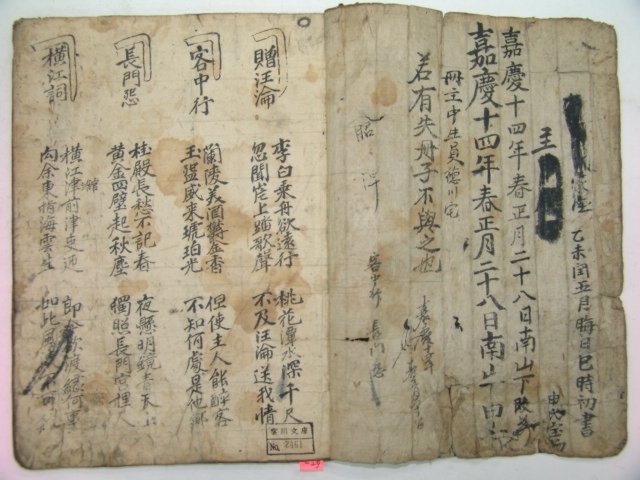 乙未閏五月晦日巳時初書
主
嘉慶十四年春正月二十八日南山下
嘉慶十四年春正月二十八日南山下
冊主中生員德川宅
若有失冊子不與之也
客中行 長門怨
贈汪淪
李白乘舟欲遠行 桃花潭水深千尺
忽聞岸上踏歌聲 不及汪淪送我情
客中行
蘭陵美酒鬱金香 但使主人能醉客
玉盌盛來琥珀光 不知何處是他鄉
長門怨
桂殿長愁不記春 夜懸明鏡青天上
黃金四壁起秋塵 獨照長門宮裡人
橫江詞
橫江津前津吏迎
館
向余東指海雲生
郎今欲渡緣何事
如此風
No. 2461